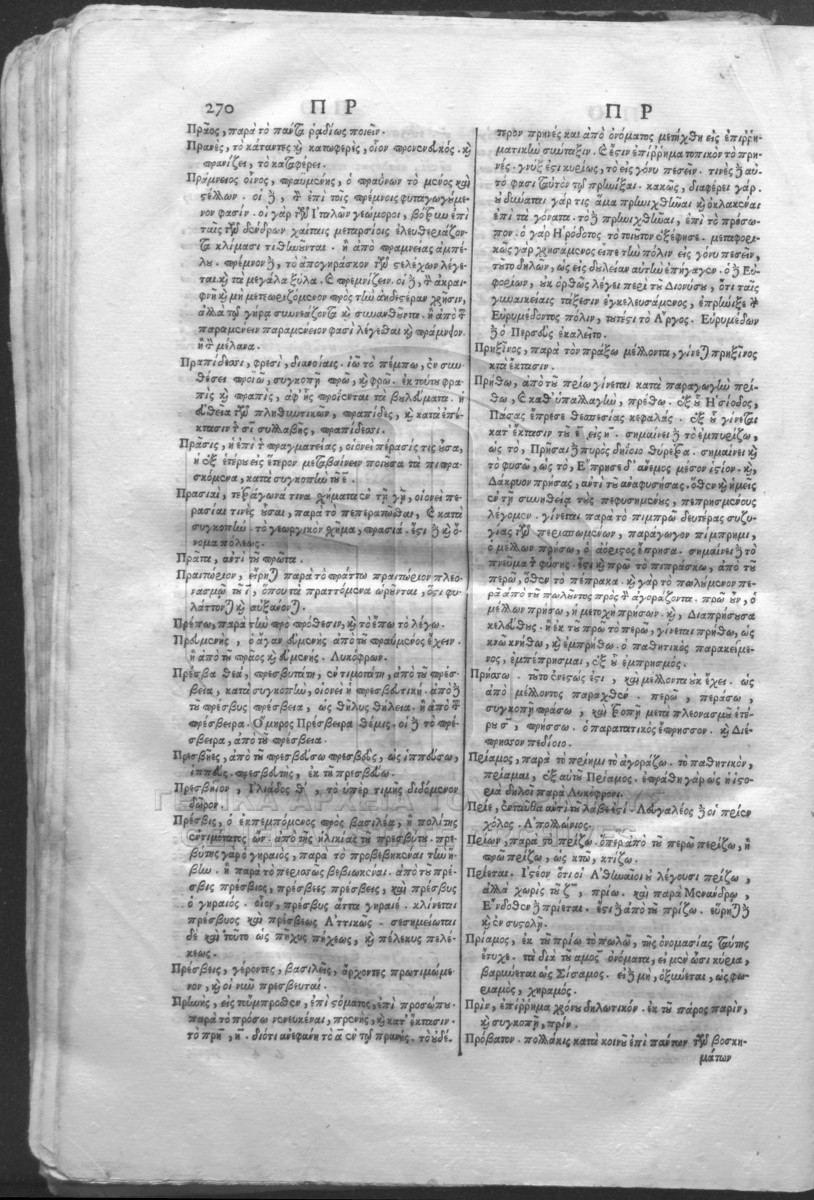 270 Π Ρ
Πρᾶος, παρὰ τὸ πάντα ῥᾳδίως ποιεῖν.
Πρανὲς, τὸ κάταντες καὶ κατωφερὲς, οἷον προνενευκός. καὶ
πρανίζει, τὸ καταφέρει.
Πράμνειος οἶνος, πραϋμενὴς, ὁ πραΰνων τὸ μένος καὶ
στέλλων. οἱ δὲ, τὸν ἐπὶ ταῖς πρέμνοις φυταγωγούμε-
νον φασίν. οἱ γὰρ τῶν Ἰταλῶν γεωμόροι, βότρυν ἐπὶ
ταῖς τῶν δένδρων χαίταις μεταρσίοις ἐλευθεριάζον-
τα κλίμασι τιθηνοῦνται. ἢ ἀπὸ πραμνείας ἀμπέ-
λου. πρέμνον δὲ, τὸ ἀπογηράσκον τῶν στελέχων λέγε-
ται καὶ τὰ μεγάλα ξύλα. καὶ πρεμνίζειν. οἱ δὲ, τὸν ἀκραι-
φνῆ καὶ μὴ μετεωριζόμενον πρὸς τὴν ἀνδεστέραν χρῆσιν,
ἀλλὰ τῷ γήρᾳ συνεάζοντα καὶ συνανθοῦντα. ἢ ἀπὸ τοῦ
παραμένειν παραμένειον φασὶ λέγεσθαι καὶ πράμνιον.
ἢ τὸν μέλανα.
Πραπίδεσσι, φρεσὶ, διανοίαις. ἰῶ τὸ πέμπω, ἐν συν-
θέσει προϊῶ, συγκοπῇ πρῶ, καὶ φρῶ. ἐκ τούτου φρα-
πὶς καὶ πραπὶς, ἀφ' ἧς προΐενται τὰ βουλεύματα. ἡ
εὐθεῖα τῶν πληθυντικῶν, πραπίδες, καὶ κατὰ ἐπέ-
κτασιν τῆς σι συλλαβῆς, πραπίδεσσι.
Πρᾶσις, ἡ ἐπὶ τῆς πραγματείας, οἱονεὶ πέρασίς τις οὖσα,
ἡ ἐξ ἑτέρου εἰς ἕτερον μεταβαίνειν ποιοῦσα τὰ πιπρα-
σκόμενα, κατὰ συγκοπὴν τοῦ ε.
Πρασιαὶ, τετράγωνα τινα σχήματα ἐν τῇ γῇ, οἱονεὶ πε-
ρασίαι τινὲς οὖσαι, παρὰ τὸ πεπερατῶσθαι, καὶ κατὰ
συγκοπὴν. τὸ γεωργικὸν σχῆμα, πρασιά. ἔστι δὲ καὶ ὄ-
νομα πόλεως.
Πρᾶτα, ἀντὶ τοῦ πρῶτα.
Πραιτώριον, εἴρηται παρὰ τὸ πράττω πραιτώριον πλεο-
νασμῷ τοῦ ι, ὅπου τὰ πραττόμενα ὁρῶνται, ὅ ἐστι φυ-
λάττονται καὶ αὐξάνονται.
Πρέπω, παρὰ τὴν πρὸ πρόθεσιν, καὶ τὸ ἔπω τὸ λέγω.
Πρευμενὴς, ὁ ἄγαν εὐμενὴς ἀπὸ τοῦ πραῢ μένος ἔχειν.
ἢ ἀπὸ τοῦ πρᾶος καὶ εὐμενής. Λυκόφρων.
Πρέσβα θεὰ, πρεσβυτάτη, ἐντιμοτάτη, ἀπὸ τοῦ πρέσ-
βεια, κατὰ συγκοπὴν, οἱονεὶ ἡ πρεσβευτική. ἀπὸ δὲ
τοῦ πρέσβυς πρέσβεια, ὡς θῆλυς θήλεια. ἢ ἀπὸ τοῦ
πρέσβειρα. Ὅμηρος Πρέσβειρα θέμις. οἱ δὲ τὸ πρέ-
σβειρα, ἀπὸ τοῦ πρέσβεια.
Πρεσβῆες, ἀπὸ τοῦ πρεσβεύσω πρεσβεὺς, ὡς ἱππεύσω,
ἱππεύς. πρεσβευτὴς, ἐκ τοῦ πρεσβεύω.
Πρεσβήϊον, Ἰλιάδος θ', τὸ ὑπὲρ τιμῆς διδόμενον
δῶρον.
Πρέσβις, ὁ ἐκπεμπόμενος πρὸς βασιλέα, ἢ πολίτης
ἐντιμότατος ὤν. ἀπὸ τῆς ἡλικίας τοῦ πρεσβύτου. πρε-
βύτης γὰρ ὁ γηραιὸς, παρὰ τὸ προβεβηκέναι τὴν ἡ-
βην. ἢ παρὰ τὸ περισσῶς βεβιωκέναι. ἀπὸ τοῦ πρέ-
σβις πρέσβιος, πρέσβιες πρέσβεις, καὶ πρέσβυς
ὁ γηραιός. οἷον, πρέσβυς ἄττα γηραιέ. κλίνεται
πρέσβυος καὶ πρέσβεως Ἀττικῶς. σεσημείωται
δὲ καὶ τοῦτο ὡς πῆχυς πήχεως, καὶ πέλεκυς πελέ-
κεως.
Πρέσβεις, γέροντες, βασιλεῖς, ἄρχοντες πρωτιμώμε-
νον, καὶ οἱ νῦν πρεσβευταί.
Πρηνὴς, εἰς τοὔμπροσθεν, ἐπὶ στόματος, ἐπὶ προσώπου.
παρὰ τὸ πρόσω νενευκέναι, προενὴς, καὶ κατ' ἔκτασιν.
τὸ πρη, η. διότι ἀνεφάνη τὸ α ἐν τῷ πρανής. τὸ οὐδέ-
Π Ρ
τερον πρηνὲς καὶ ἀπὸ ὀνόματος μετήχθη εἰς ἐπιῤῥη-
ματικὴν σύνταξιν. καὶ ἔστιν ἐπίῤῥημα τοπικὸν τὸ πρη-
νές. γνὺξ ἐστι κυρίως, τὸ εἰς γόνυ πεσεῖν. τινὲς δὲ αὐ-
τό φασι ταὐτὸν τῷ πρηνίξαι. κακῶς, διαφέρει γάρ.
οὐ δύναται γάρ τις ἅμα πρηνιχθῆναι καὶ ὀκλακέναι
ἐπὶ τὰ γόνατα. τὸ δὲ πρηνιχθῆναι, ἐπὶ τὸ πρόσω-
πον. ὁ γὰρ Ἡρόδοτος τὸ τοιοῦτον ἐξέφησε. μεταφορι-
κῶς γὰρ χρησάμενος εἶπε τὴν πόλιν εἰς γόνυ πεσεῖν,
τοῦτο δηλῶν, ὡς εἰς δουλείαν αὐτὴν ἐπήγαγεν. ὁ δὲ Εὐ-
φορίων, οὐκ ὀρθῶς λέγει περὶ τοῦ Διονύσου, ὅτι ταῖς
γυναικείαις τάξεσιν ἐγκελευσάμενος, ἐπρήνιξε τὴν
Εὐρυμέδοντος πόλιν, τουτέστι τὸ Ἄργος. Εὐρυμέδων
δὲ ὁ Περσεὺς ἐκαλεῖτο.
Πρηξῖνος, παρὰ τὸν πράξω μέλλοντα, γίνεται πρηξῖνος
κατὰ ἔκτασιν.
Πρήθω, ἀπὸ τοῦ πρίω γίνεται κατὰ παραγωγὴν πρί-
θω, καὶ καθ' ὑπαλλαγὴν, πρέθω. ἐξ οὗ Ἡσίοδος,
Πάσας ἔπρεσε θεσπεσίας κεφαλάς. ἐξ οὗ γίνεται
κατ' ἔκτασιν τοῦ ε, εἰς η. σημαίνει δὲ τὸ ἐμπυρίζω,
ὡς τὸ, Πρῆσαι δὲ πυρὸς δηΐοιο θύρετρα. σημαίνει καὶ
τὸ φυσῶ, ὡς τὸ, Ἔπρησε δ' ἄνεμος μέσον ἱστίον. καὶ,
Δάκρυον πρήσας, ἀντὶ τοῦ ἀναφυσήσας. ὅθεν καὶ ἡμεῖς
ἐν τῇ συνηθείᾳ τοὺς πεφυσημένους, πεπρησμένους
λέγομεν. γίνεται παρὰ τὸ πιμπρῶ δευτέρας συζυ-
γίας τῶν περισπωμένων, παράγωγον πίμπρημι,
ὁ μέλλων πρήσω, ὁ ἀόριστος ἔπρησα. σημαίνει δὲ τὸ
πνεῦμα τῆς φύσης. ἔστι καὶ πρῶ τὸ πιπράσκω, ἀπὸ τοῦ
περῶ, ὅθεν τὸ πέπρακα. καὶ γὰρ τὸ πωλούμενον πε-
ρᾷ ἀπὸ τοῦ πωλοῦντος πρὸς τὸν ἀγοράζοντα. πρῶ οὖν, ὁ
μέλλων πρήσω, ἡ μετοχὴ πρήσων. καὶ, Διαπρήσουσα
κελεύθους. ἢ ἐκ τοῦ πρῶ τὸ περῶ, γίνεται πρήθω, ὡς
κνῶ κνήθω, καὶ ἐμπρήθω. ὁ παθητικὸς παρακείμε-
νος, ἐμπέπρησμαι, ἐξ οὗ ἐμπρησμός.
Πρήσσω. τοῦτο ἐνεστώς ἐστι, καὶ μέλλοντα οὐκ ἔχει. ὡς
ἀπὸ μέλλοντος παραχθέν. περῶ, περάσω,
συγκοπῇ πράσω, καὶ τροπῇ μετὰ πλεονασμοῦ ἑτέ-
ρου σ, πρήσσω. ὁ παρατατικὸς ἔπρησσον. καὶ Διέ-
πρησσον πεδίοιο.
Πρίαμος, παρὰ τὸ πρίημι τὸ ἀγοράζω. τὸ παθητικὸν,
πρίαμαι, ἐξ αὐτοῦ Πρίαμος. ἐπράθη γὰρ ὡς ἡ ἱστο-
ρία δηλοῖ παρὰ Λυκόφρονι.
Πρίε, ἐνταῦθα ἀντὶ τοῦ λάβε ἐστί. Λευγαλέος δέ οἱ πρίεν
χόλος. Ἀπολλώνιος.
Πρίων, παρὰ τὸ πρίζω. ὅπερ ἀπὸ τοῦ περῶ περίζω, ἢ
πρῶ πρίζω, ὡς κτῶ, κτίζω.
Πρίεται. Ἰστέον ὅτι οἱ Ἀθηναῖοι οὐ λέγουσι πρίζω,
ἀλλὰ χωρὶς τοῦ ζ, πρίω. καὶ παρὰ Μενάνδρῳ,
Ἔνδοθεν δὲ πρίεται. ἔστι δὲ ἀπὸ τοῦ πρίζω. εὕρηται δὲ
καὶ ἐν συστολῇ.
Πρίαμος, ἐκ τοῦ πρίω τὸ πωλῶ, τῆς ὀνομασίας ταύτης
ἔτυχε. τὰ διὰ τοῦ αμος ὀνόματα, εἰ μὲν ὦσι κύρια,
βαρύνεται ὡς Σίσαμος. εἰ δὲ μὴ, ὀξύνεται, ὡς φω-
ριαμὸς, χηραμός.
Πρὶν, ἐπίῤῥημα χρόνου δηλωτικόν. ἐκ τοῦ πάρος παρὶν,
καὶ συγκοπῇ, πρίν.
Πρόβατον. πολλάκις κατὰ κοινοῦ ἐπὶ πάντων τῶν βοσκη-
μάτων
ΓΕΝΙΚΑ ΑΡΧΕΙΑ ΤΟΥ